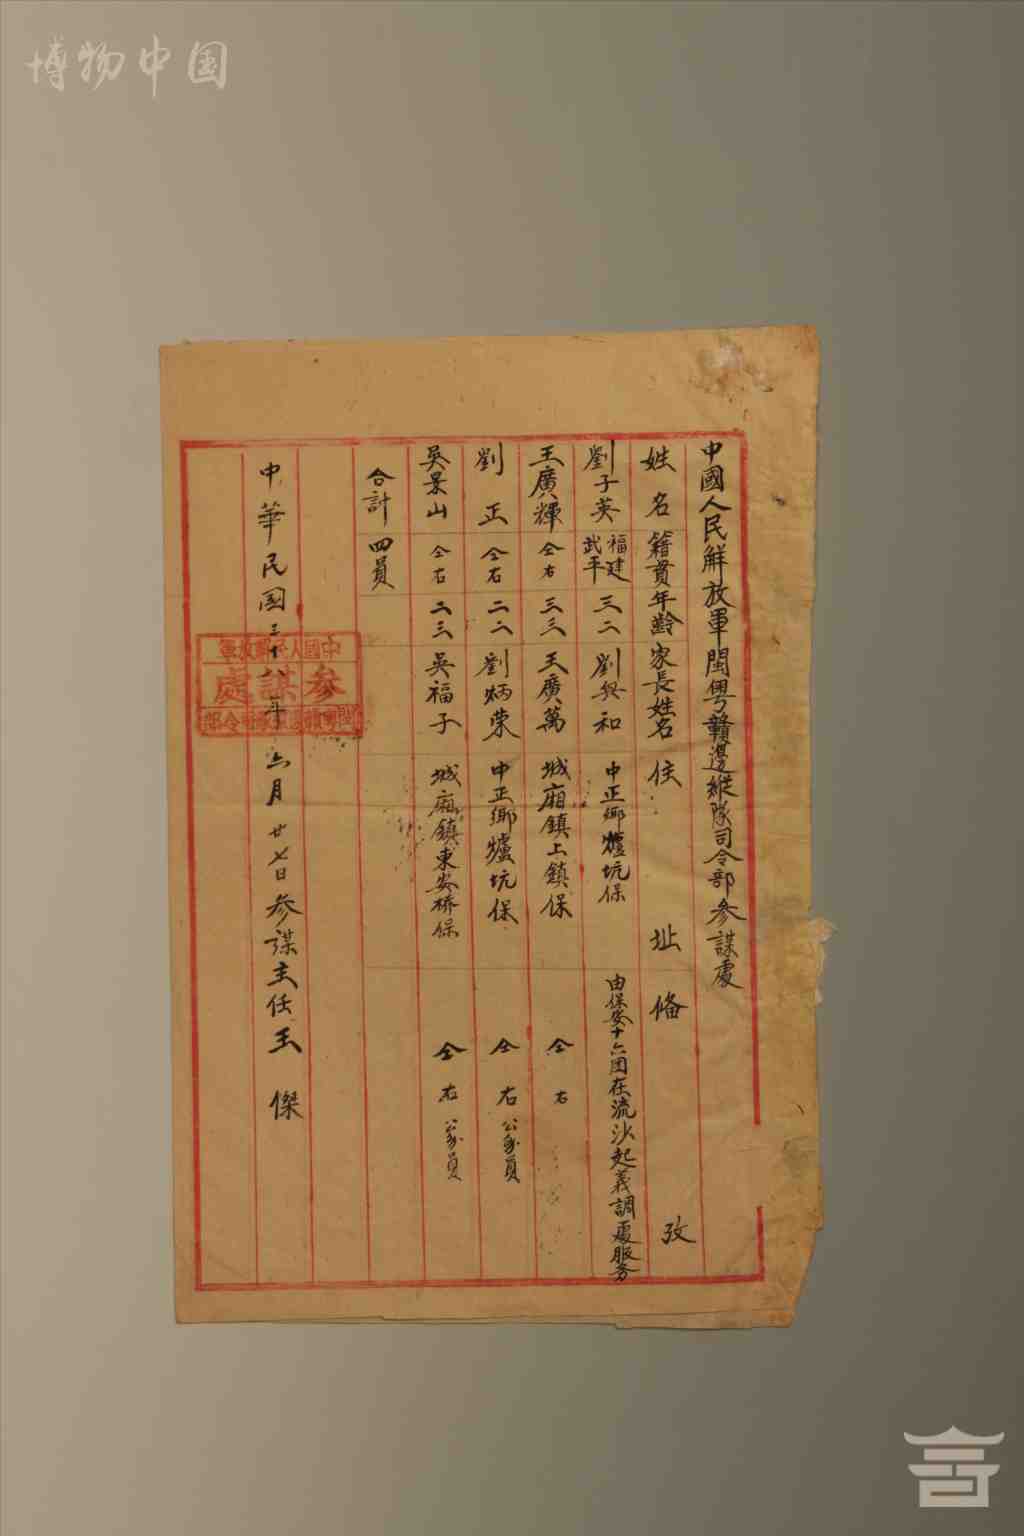 博物中国
中國人民解放軍閩粵贛邊縱隊司令部參謀處
姓名 籍貫 年齡 家長姓名 住址 俻攷
劉子英 福建武平 三二 劉興和 中正鄉爐坑保 由保安十六团在流沙起義調處服务
王廣輝 仝右 三三 王廣萬 城廂鎮上鎮保 仝右
劉正 仝右 二二 劉炳荣 中正鄉爐坑保 仝右 公役員
吳景山 仝右 二三 吳福子 城廂鎮東安橋保 仝右
合計 四員
中華民國三十年六月廿七日參謀主任王傑
中國人民解放軍
參謀處
閩粵贛邊縱隊司令部